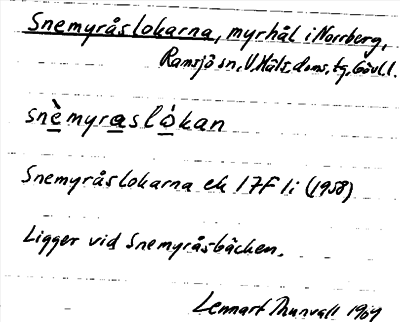 Snemyråslokarna, myrhål i Norrberg,
Ramsjö sn, V. Häls. doms. tg, Gävl. l.
snèmyraslókan
Snemyråslokarna ek 17F 1i (1958)
Ligger vid Snemyråsbäcken.
Lennart Thunvall 1969